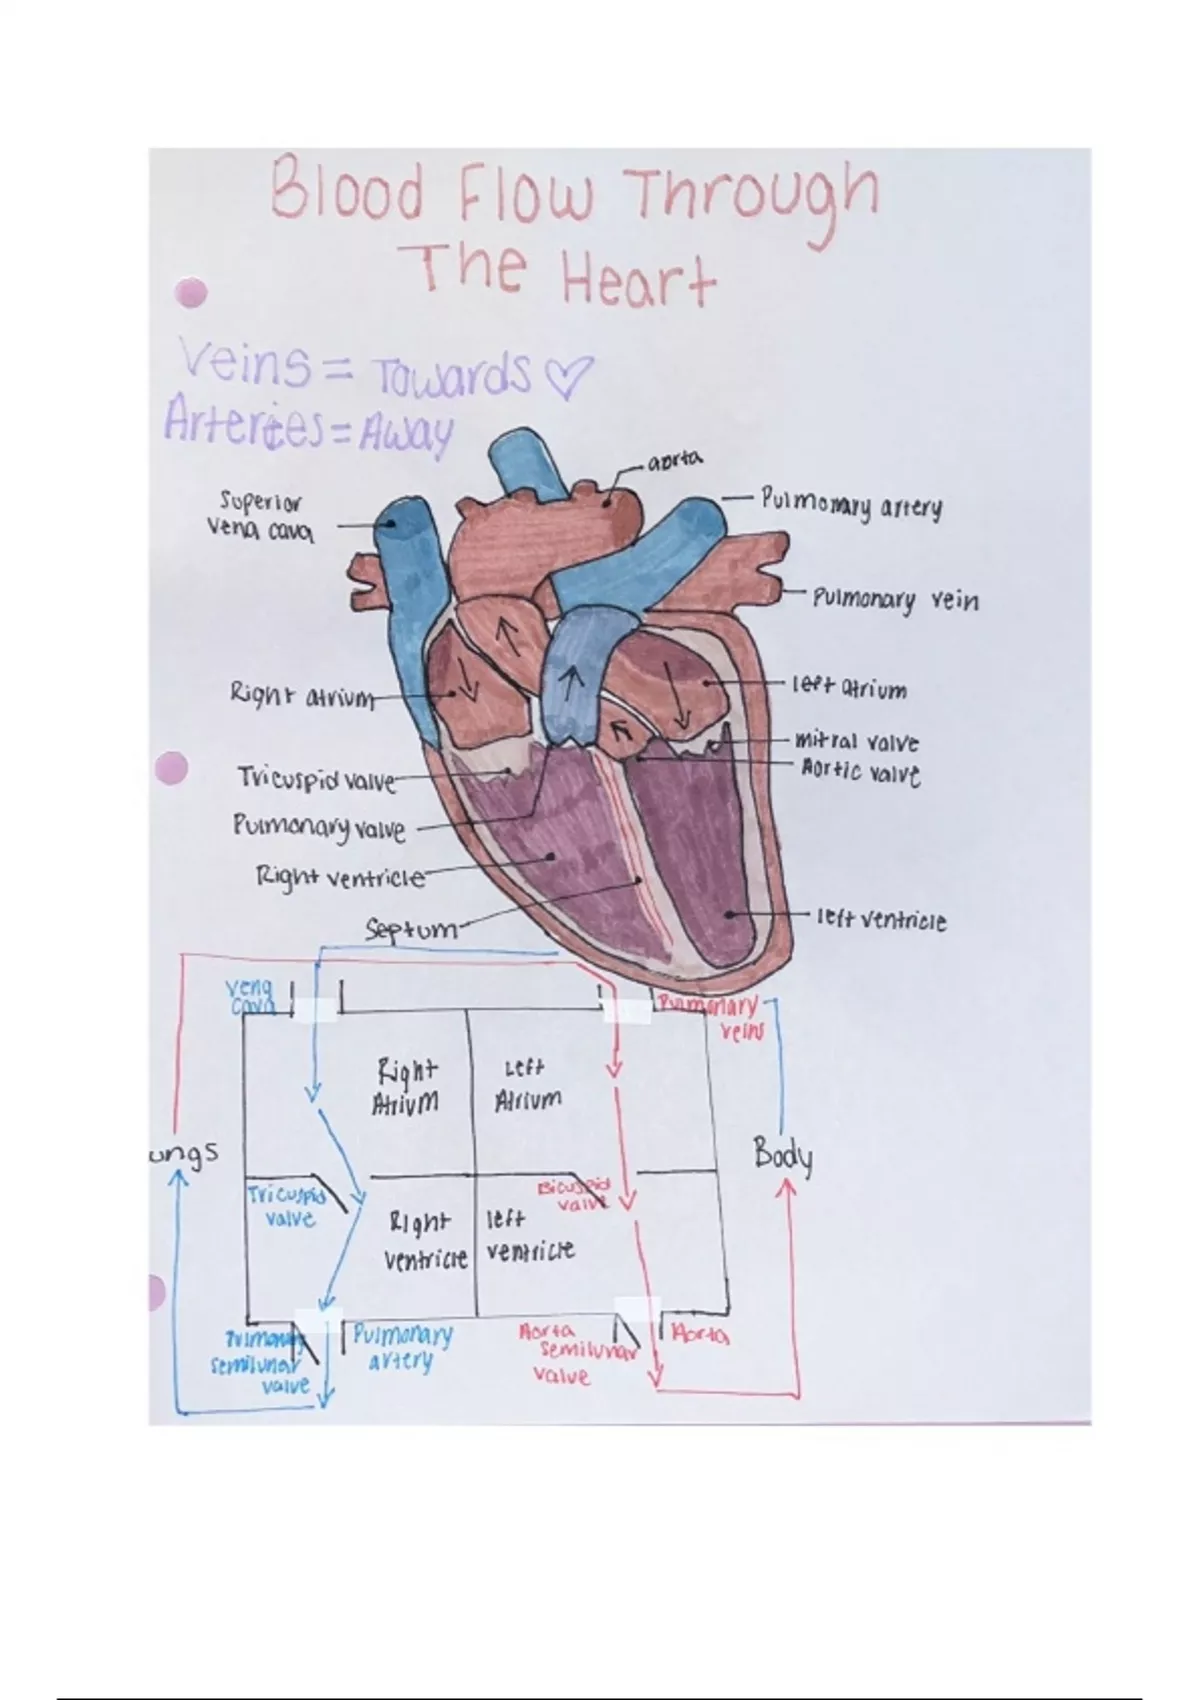 Blood Flow Through
The Heart
Veins = Towards ♡
Arteries = Away
aorta
Superior
vena cava
Pulmonary artery
Pulmonary vein
Right atrium
left atrium
mitral valve
Aortic valve
Tricuspid valve
Pulmonary valve
Right ventricle
Septum
left ventricle
Vena
Cava
Pulmonary
veins
Right
Atrium
Left
Atrium
ungs
Body
Tricuspid
valve
Bicuspid
valve
Right
ventricle
left
ventricle
Pulmonary
semilunar
valve
Pulmonary
artery
Aorta
semilunar
valve
Aorta